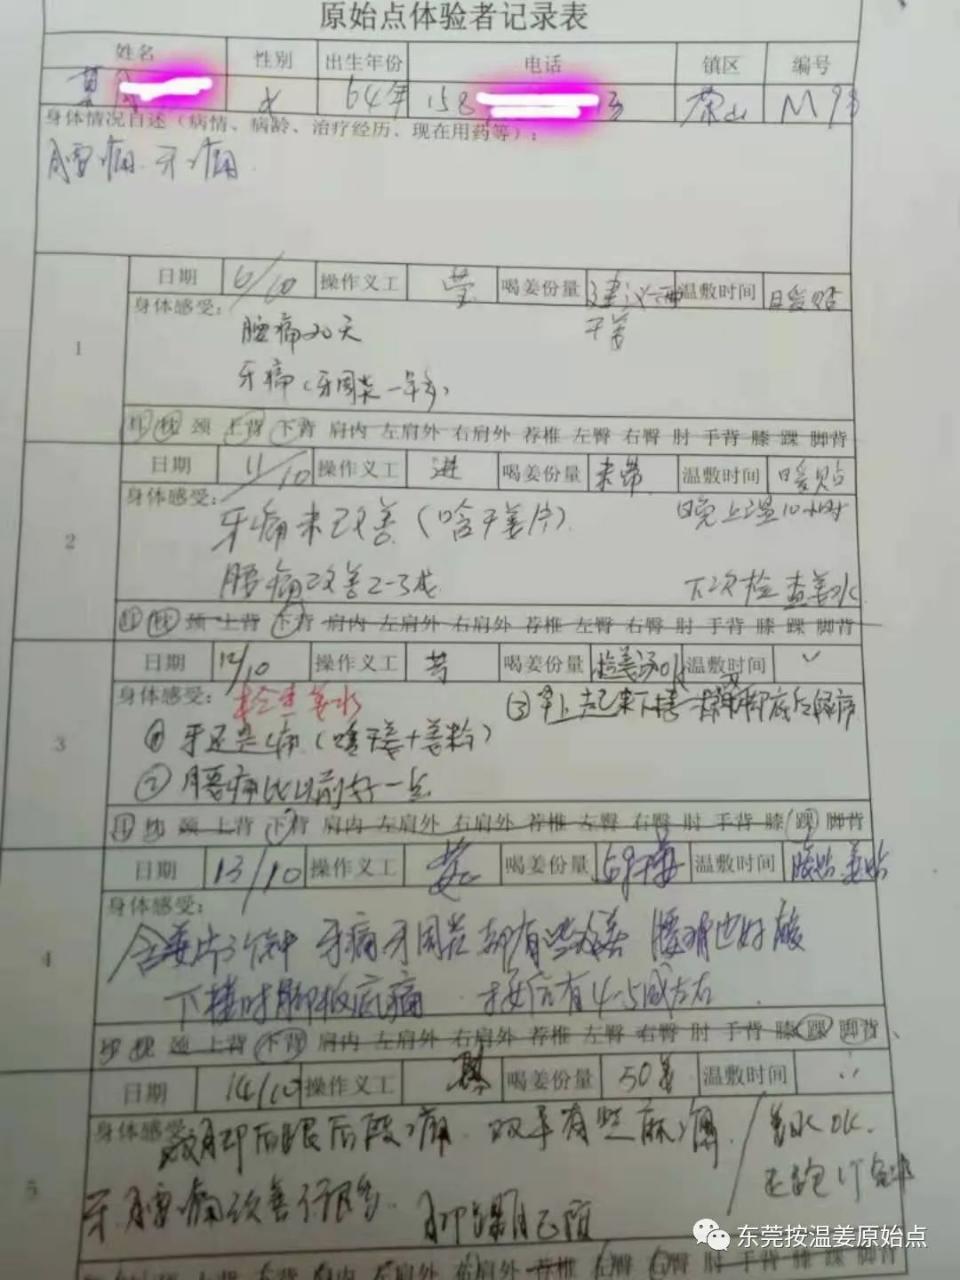 原始点体验者记录表
姓名 性别 出生年份 电话 镇区 编号
女 64年 158 3 茶山 M93
身体情况自述（病情、病龄、治疗经历、现在用药等）：
腰痛、牙痛
1 日期 6/10 操作义工 莹 喝姜份量 建议喝干姜 温敷时间 暖贴
身体感受：
腰痛20天
牙痛（牙周炎一年多）
耳 枕 颈 上背 下背 肩内 左肩外 右肩外 荐椎 左臀 右臀 肘 手背 膝 踝 脚背
2 日期 11/10 操作义工 进 喝姜份量 未带 温敷时间 暖贴
身体感受： 晚上温10小时
牙痛未改善（含干姜片）
腰痛改善2-3成 下次检查姜水
耳 枕 颈 上背 下背 肩内 左肩外 右肩外 荐椎 左臀 右臀 肘 手背 膝 踝 脚背
3 日期 12/10 操作义工 喝姜份量 温敷时间 ✓
身体感受： 检查姜水 ③早上起来下楼 脚底后
① 牙还是痛（含干姜+姜粉）
② 腰痛比以前好一点
耳 枕 颈 上背 下背 肩内 左肩外 右肩外 荐椎 左臀 右臀 肘 手背 膝 踝 脚背
4 日期 13/10 操作义工 喝姜份量 温敷时间 暖贴 姜贴
身体感受：
含姜片 牙痛牙周炎都有些改善 腰痛也好
下楼时脚板底痛 按后有4-5成左右
枕 颈 上背 下背 肩内 左肩外 右肩外 荐椎 左臀 右臀 肘 手背 膝 踝 脚背
5 日期 14/10 操作义工 喝姜份量 50姜 温敷时间
身体感受：
脚后跟后段痛 双手有些麻痛 姜水OK.
牙、腰痛改善了很多
下背 肩内 左肩外 右肩外 荐椎 左臀 右臀 肘 手背 膝 踝 脚背
东莞按温姜原始点